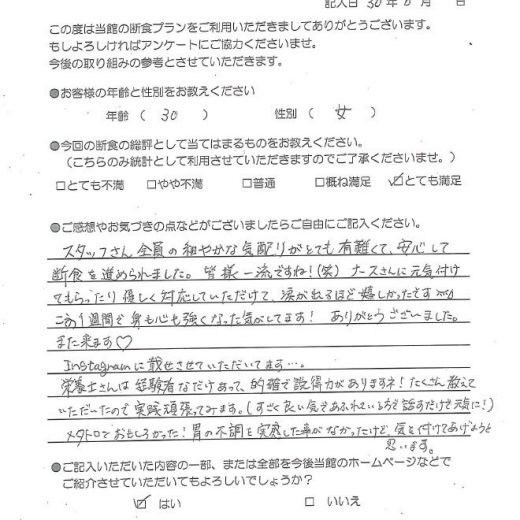 記入日 30年 6月 日
この度は当館の断食プランをご利用いただきましてありがとうございます。
もしよろしければアンケートにご協力くださいませ。
今後の取り組みの参考とさせていただきます。
●お客様の年齢と性別をお教えください
年齢 ( 30 ) 性別 ( 女 )
●今回の断食の総評として当てはまるものをお教えください。
(こちらのみ統計として利用させていただきますのでご了承くださいませ。)
□とても不満 □やや不満 □普通 □概ね満足 ☑とても満足
●ご感想やお気づきの点などがございましたらご自由にご記入ください。
スタッフさん全員の和やかな気配りがとても有難くて、安心して
断食を進められました。皆様一流ですね!(笑) ナースさんに元気付け
てもらったり優しく対応していただけて、涙がでるほど嬉しかったです
この1週間で身も心も強くなった気がしてます! ありがとうございました。
また来ます♡
Instagramに載せさせていただいてます…。
栄養士さんは経験者なだけあって、的確で説得力がありますネ!たくさん教えて
いただいたので実践頑張ってみます。(すごく良い気であふれているので話すだけで元気に!)
メタトロンおもしろかった!胃の不調を実感した事がなかったけど、気を付けてあげようと
思います。
●ご記入いただいた内容の一部、または全部を今後当館のホームページなどで
ご紹介させていただいてもよろしいでしょうか?
☑ はい □ いいえ